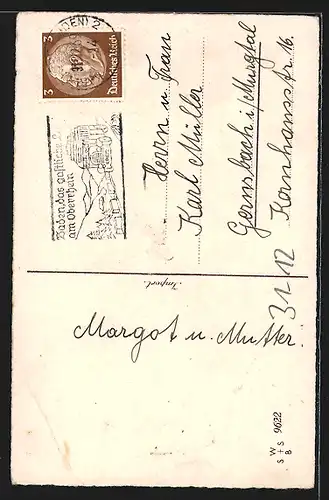 3
3
Deutsches Reich
Baden, das gastliche
am Oberrhein
Herrn u. Frau
Karl Müller
Gernsbach i/Murgtal
Kornhausstr. 16.
31 12
Import.
Margot u. Mutter.
W
S + S 9622
8